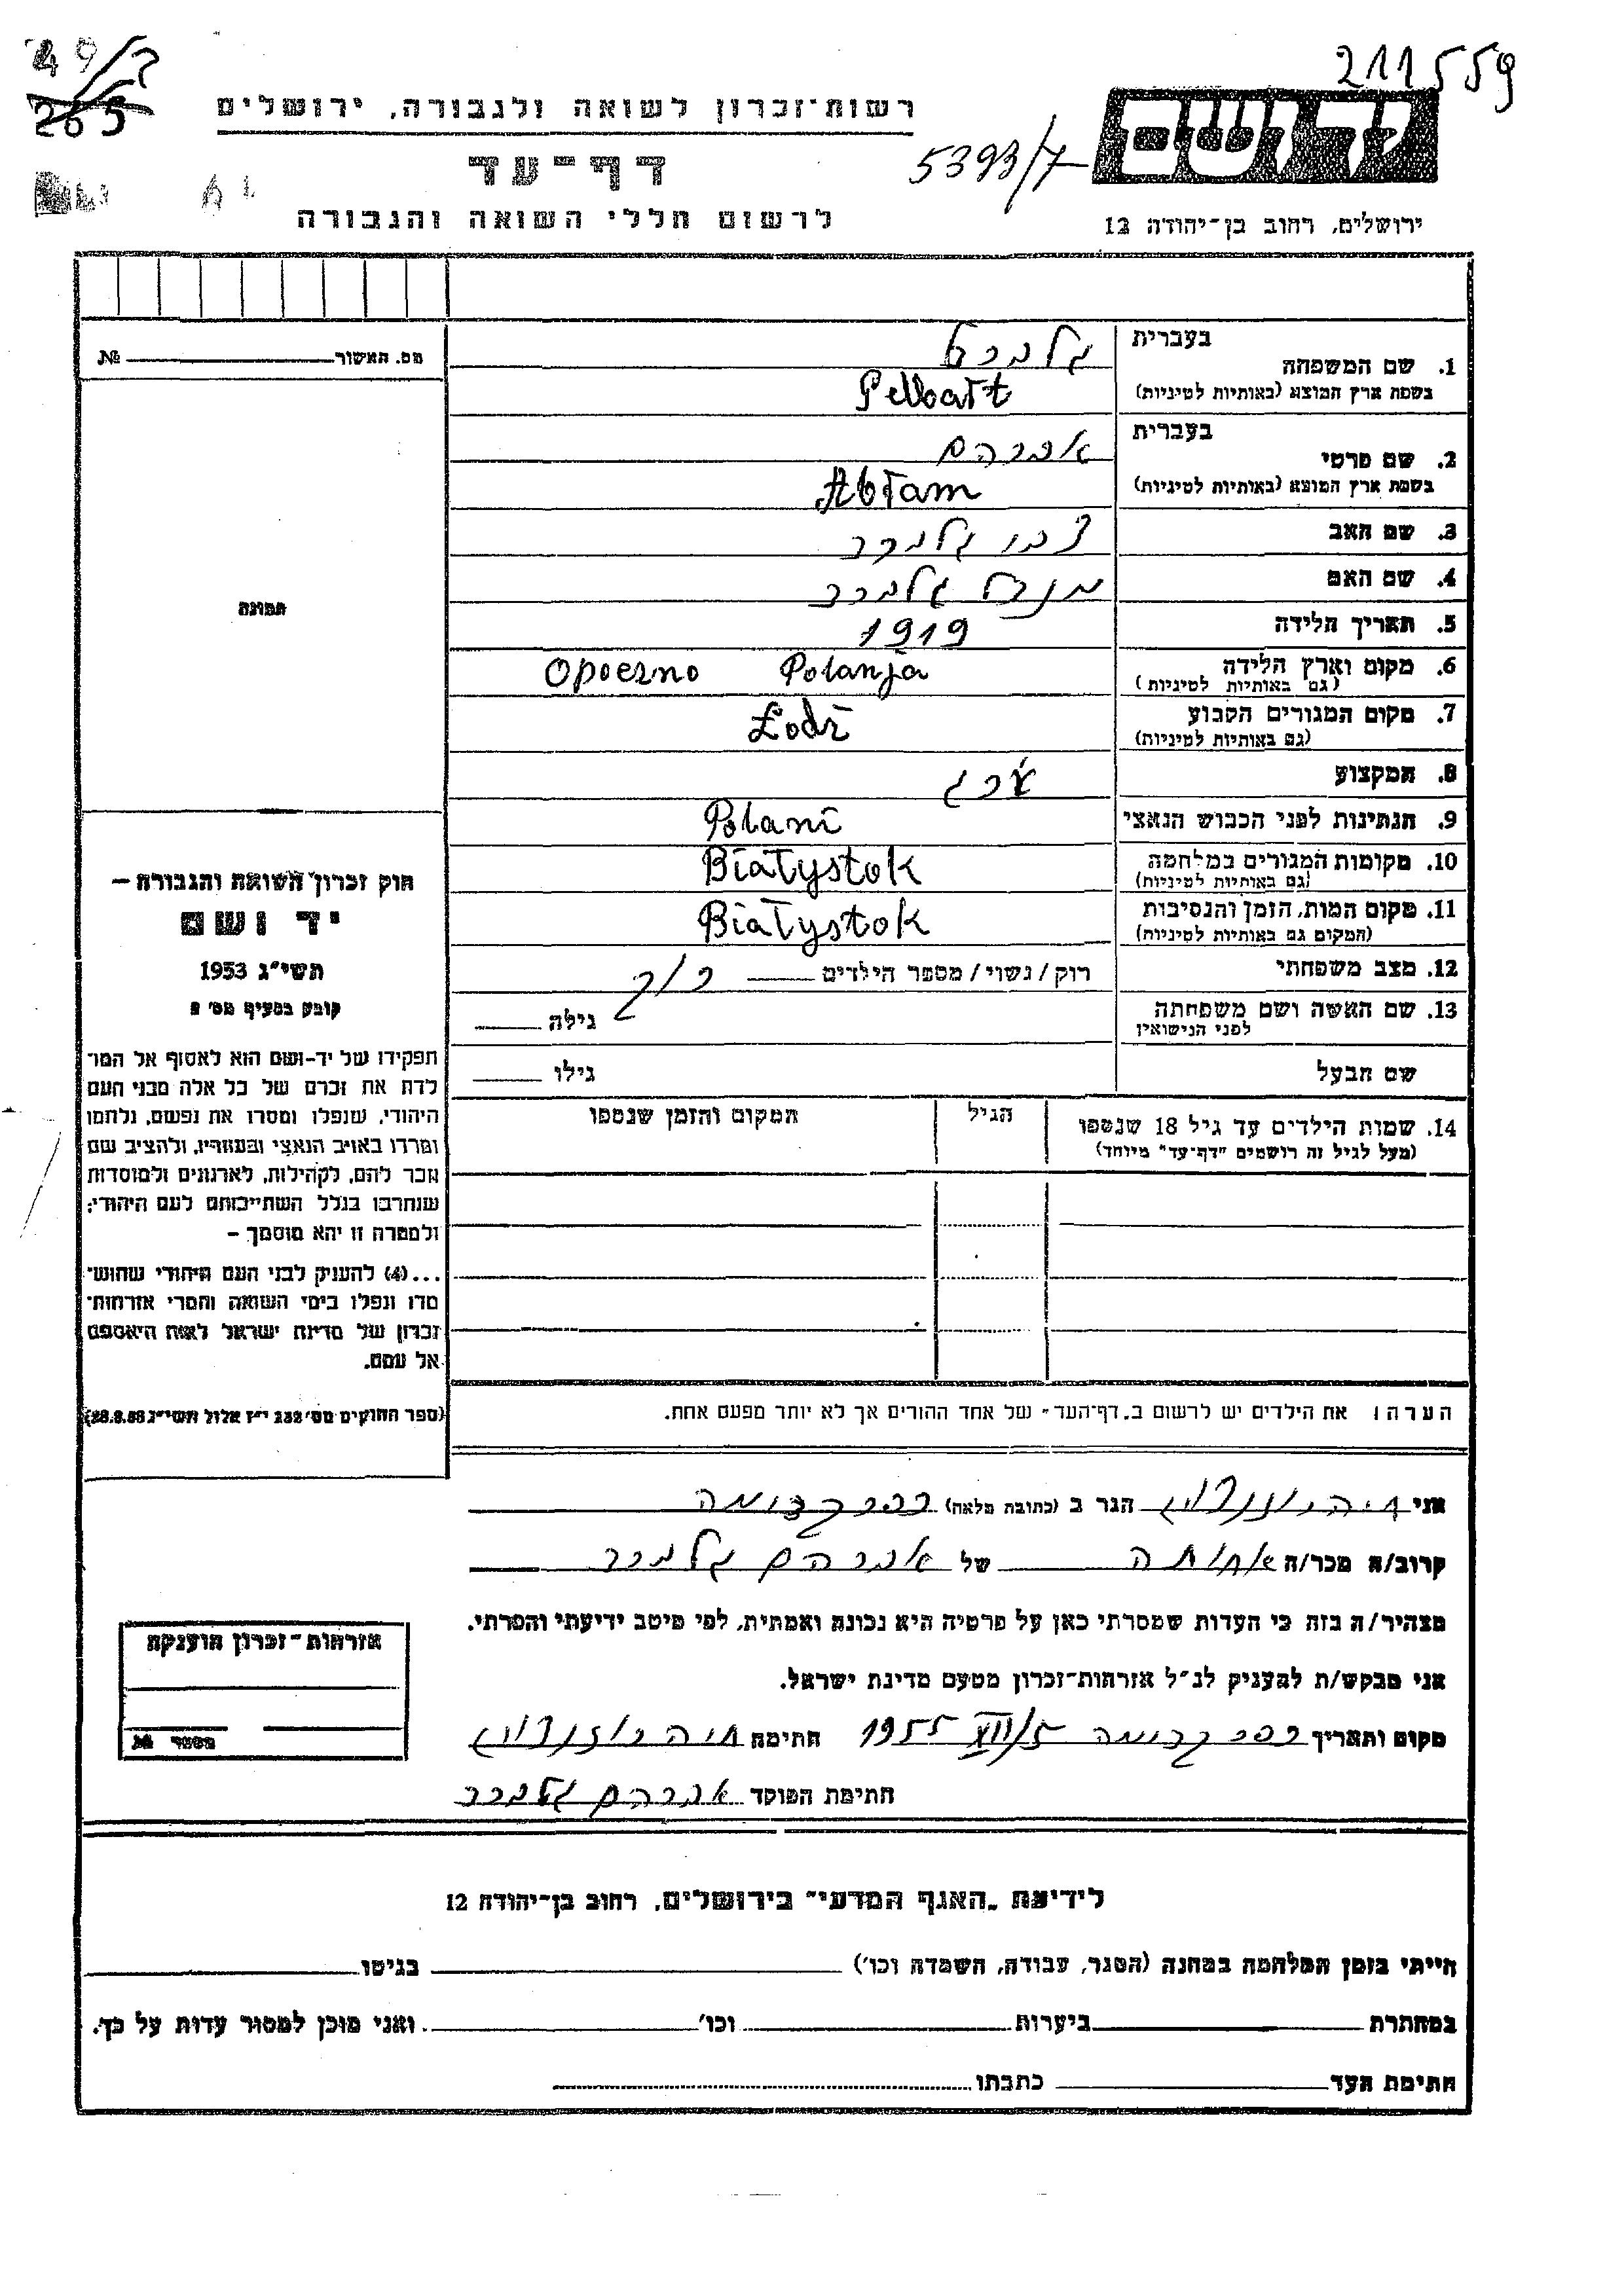 49/2
265
211559
רשות־זכרון לשואה ולגבורה, ירושלים
ידושם
5393/7
דף־עד
לרשום חללי השואה והגבורה
ירושלים, רחוב בן־יהודה 12
מס. האשור №
בעברית
1. שם המשפחה
בשפת ארץ המוצא (באותיות לטיניות) Pelbart
בעברית
2. שם פרטי אברהם
בשפת ארץ המוצא (באותיות לטיניות) Abram
3. שם האב
4. שם האם
5. תאריך הלידה 1919
6. מקום וארץ הלידה Opoczno Polanja
(גם באותיות לטיניות)
7. מקום המגורים הקבוע Łodź
(גם באותיות לטיניות)
8. המקצוע
9. הנתינות לפני הכבוש הנאצי Polani
10. מקומות המגורים במלחמה Białystok
(גם באותיות לטיניות)
11. מקום המות, הזמן והנסיבות Białystok
(המקום גם באותיות לטיניות)
12. מצב משפחתי רוק/נשוי/מספר הילדים
13. שם האשה ושם משפחתה גילה
לפני הנישואין
שם הבעל גילו
14. שמות הילדים עד גיל 18 שנספו הגיל המקום והזמן שנספו
(מעל לגיל זה רושמים "דף־עד" מיוחד)
הערה: את הילדים יש לרשום ב„דף־העד" של אחד ההורים אך לא יותר מפעם אחת.
תמונה
חוק זכרון השואה והגבורה –
יד ושם
תשי״ג 1953
קובע בסעיף מס׳ 2
תפקידו של יד-ושם הוא לאסוף אל המו־
לדת את זכרם של כל אלה מבני העם
היהודי, שנפלו ומסרו את נפשם, נלחמו
ומרדו באויב הנאצי ובעוזריו, ולהציב שם
וזכר להם, לקהילות, לארגונים ולמוסדות
שנחרבו בגלל השתייכותם לעם היהודי;
ולמטרה זו יהא מוסמך –
...(4) להעניק לבני העם היהודי שהוש־
מדו ונפלו בימי השואה והמרי אזרחות־
זכרון של מדינת ישראל לאות היאספם
אל עמם.
(ספר החוקים מס׳ 132 י״ז אלול תשי״ג 28.8.53)
אני חיה הגר ב (כתובת מלאה)
קרוב/ה מכר/ה אחותה של אברהם
מצהיר/ה בזה כי העדות שמסרתי כאן על פרטיה היא נכונה ואמתית, לפי מיטב ידיעתי והכרתי.
אני מבקש/ת להעניק לנ״ל אזרחות־זכרון מטעם מדינת ישראל.
מקום ותאריך 5/XII 1955 חתימה חיה
חתימת הפוקד אברהם
אזרחות־זכרון הוענקה
מספר №
לידיעת „האגף המדעי" בירושלים, רחוב בן־יהודה 12
הייתי בזמן המלחמה במחנה (הסגר, עבודה, השמדה וכו׳) בגיטו
במחתרת ביערות וכו׳ ואני מוכן למסור עדות על כך.
חתימת העד כתבתו